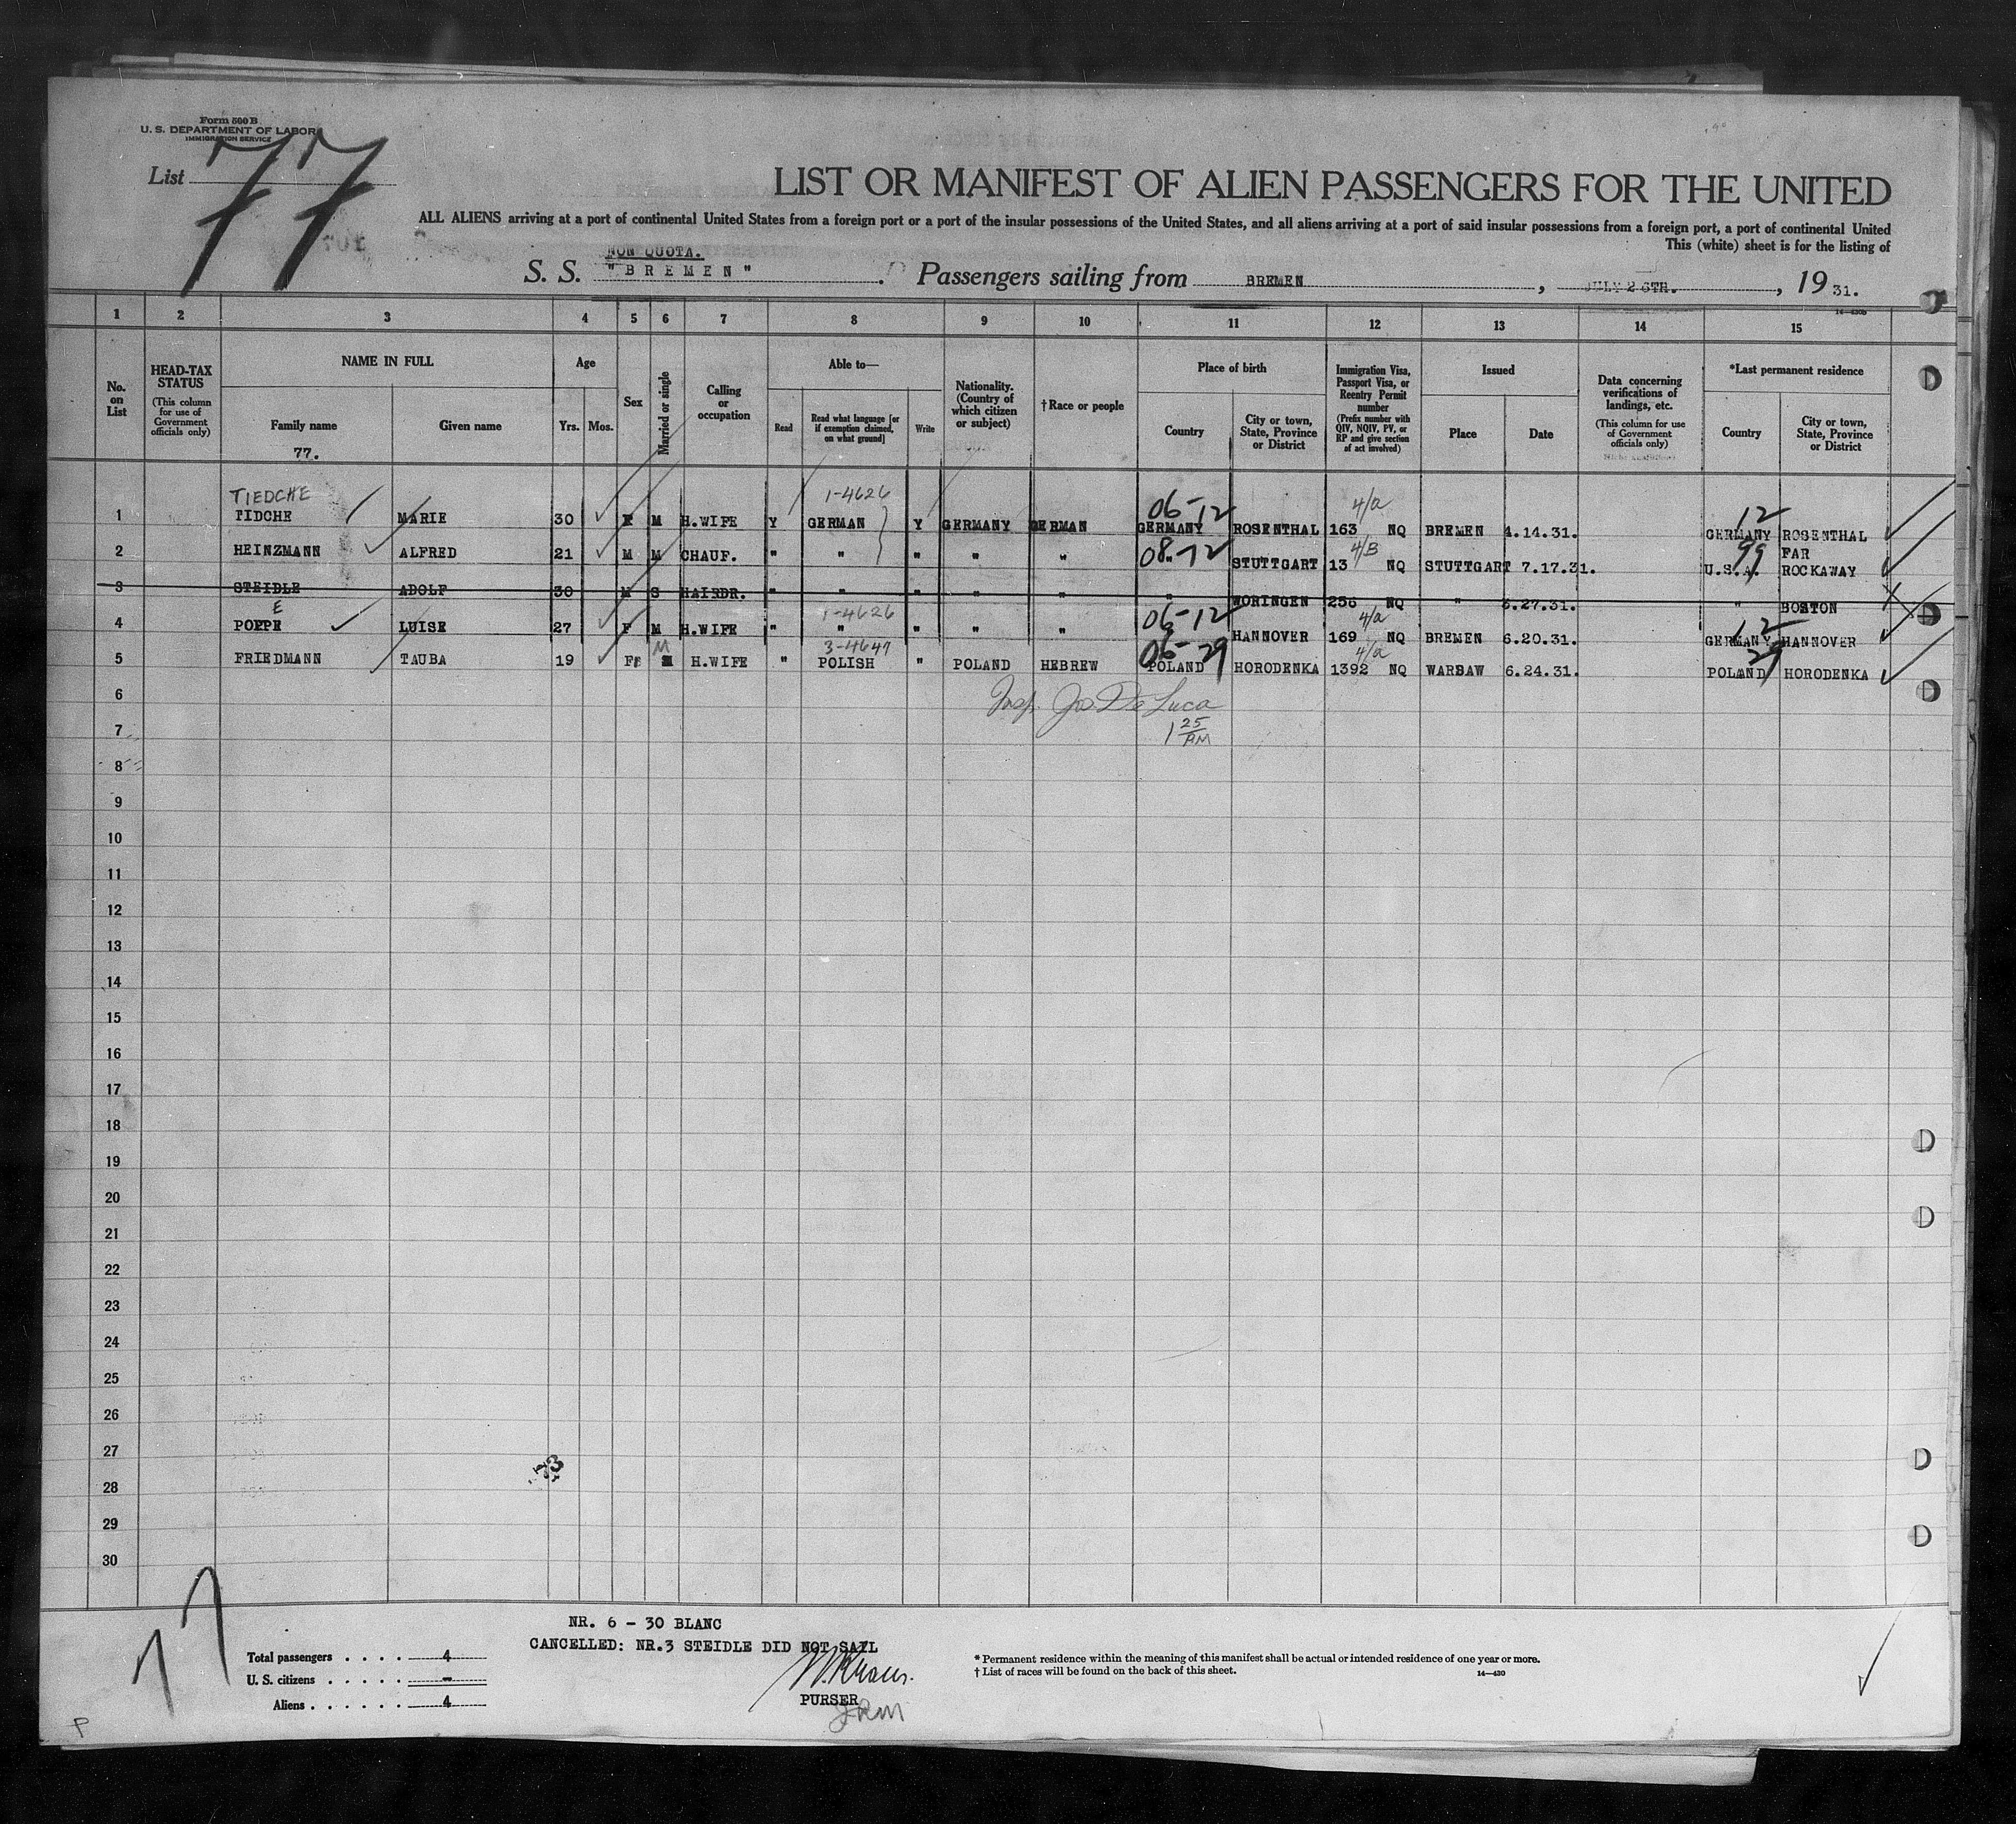 Form 500 B
U. S. DEPARTMENT OF LABOR
IMMIGRATION SERVICE
List 77
LIST OR MANIFEST OF ALIEN PASSENGERS FOR THE UNITED
ALL ALIENS arriving at a port of continental United States from a foreign port or a port of the insular possessions of the United States, and all aliens arriving at a port of said insular possessions from a foreign port, a port of continental United
This (white) sheet is for the listing of
NON QUOTA.
S. S. "BREMEN". Passengers sailing from BREMEN, JULY 26TH., 1931.
14—430b
1 2 3 4 5 6 7 8 9 10 11 12 13 14 15
No. on List
HEAD-TAX STATUS
(This column for use of Government officials only)
NAME IN FULL
Family name
77.
Given name
Age
Yrs. Mos.
Sex
Married or single
Calling or occupation
Able to—
Read
Read what language [or if exemption claimed, on what ground]
Write
Nationality. (Country of which citizen or subject)
†Race or people
Place of birth
Country
City or town, State, Province or District
Immigration Visa, Passport Visa, or Reentry Permit number
(Prefix number with QIV, NQIV, PV, or RP and give section of act involved)
Issued
Place
Date
Data concerning verifications of landings, etc.
(This column for use of Government officials only)
*Last permanent residence
Country
City or town, State, Province or District
TIEDCHE 1-4626 06-12 4/a 12
1 TIDCHE MARIE 30 F M H.WIFE Y GERMAN Y GERMANY GERMAN GERMANY ROSENTHAL 163 NQ BREMEN 4.14.31. GERMANY ROSENTHAL
08-12 4/B 99
2 HEINZMANN ALFRED 21 M M CHAUF. " " " " " " STUTTGART 13 NQ STUTTGART 7.17.31. U.S.A. FAR ROCKAWAY
3 STEIDLE ADOLF 30 M S HAIRDR. " " " " " " WORINGEN 256 NQ " 6.27.31. " BOSTON
E 1-4626 06-12 4/a 12
4 POPPE LUISE 27 F M H.WIFE " " " " " HANNOVER 169 NQ BREMEN 6.20.31. GERMANY HANNOVER
M 3-4647 06-29 4/a 29
5 FRIEDMANN TAUBA 19 F H.WIFE " POLISH " POLAND HEBREW POLAND HORODENKA 1392 NQ WARSAW 6.24.31. POLAND HORODENKA
6
Insp. Jos. De Luca
7
1 25 AM
8
9
10
11
12
13
14
15
16
17
18
19
20
21
22
23
24
25
26
27
28
29
30
77
NR. 6 - 30 BLANC
CANCELLED: NR.3 STEIDLE DID NOT SAIL
Total passengers . . . . 4
U. S. citizens . . . . . -
Aliens . . . . . . 4
PURSER
* Permanent residence within the meaning of this manifest shall be actual or intended residence of one year or more.
† List of races will be found on the back of this sheet.
14—430
P